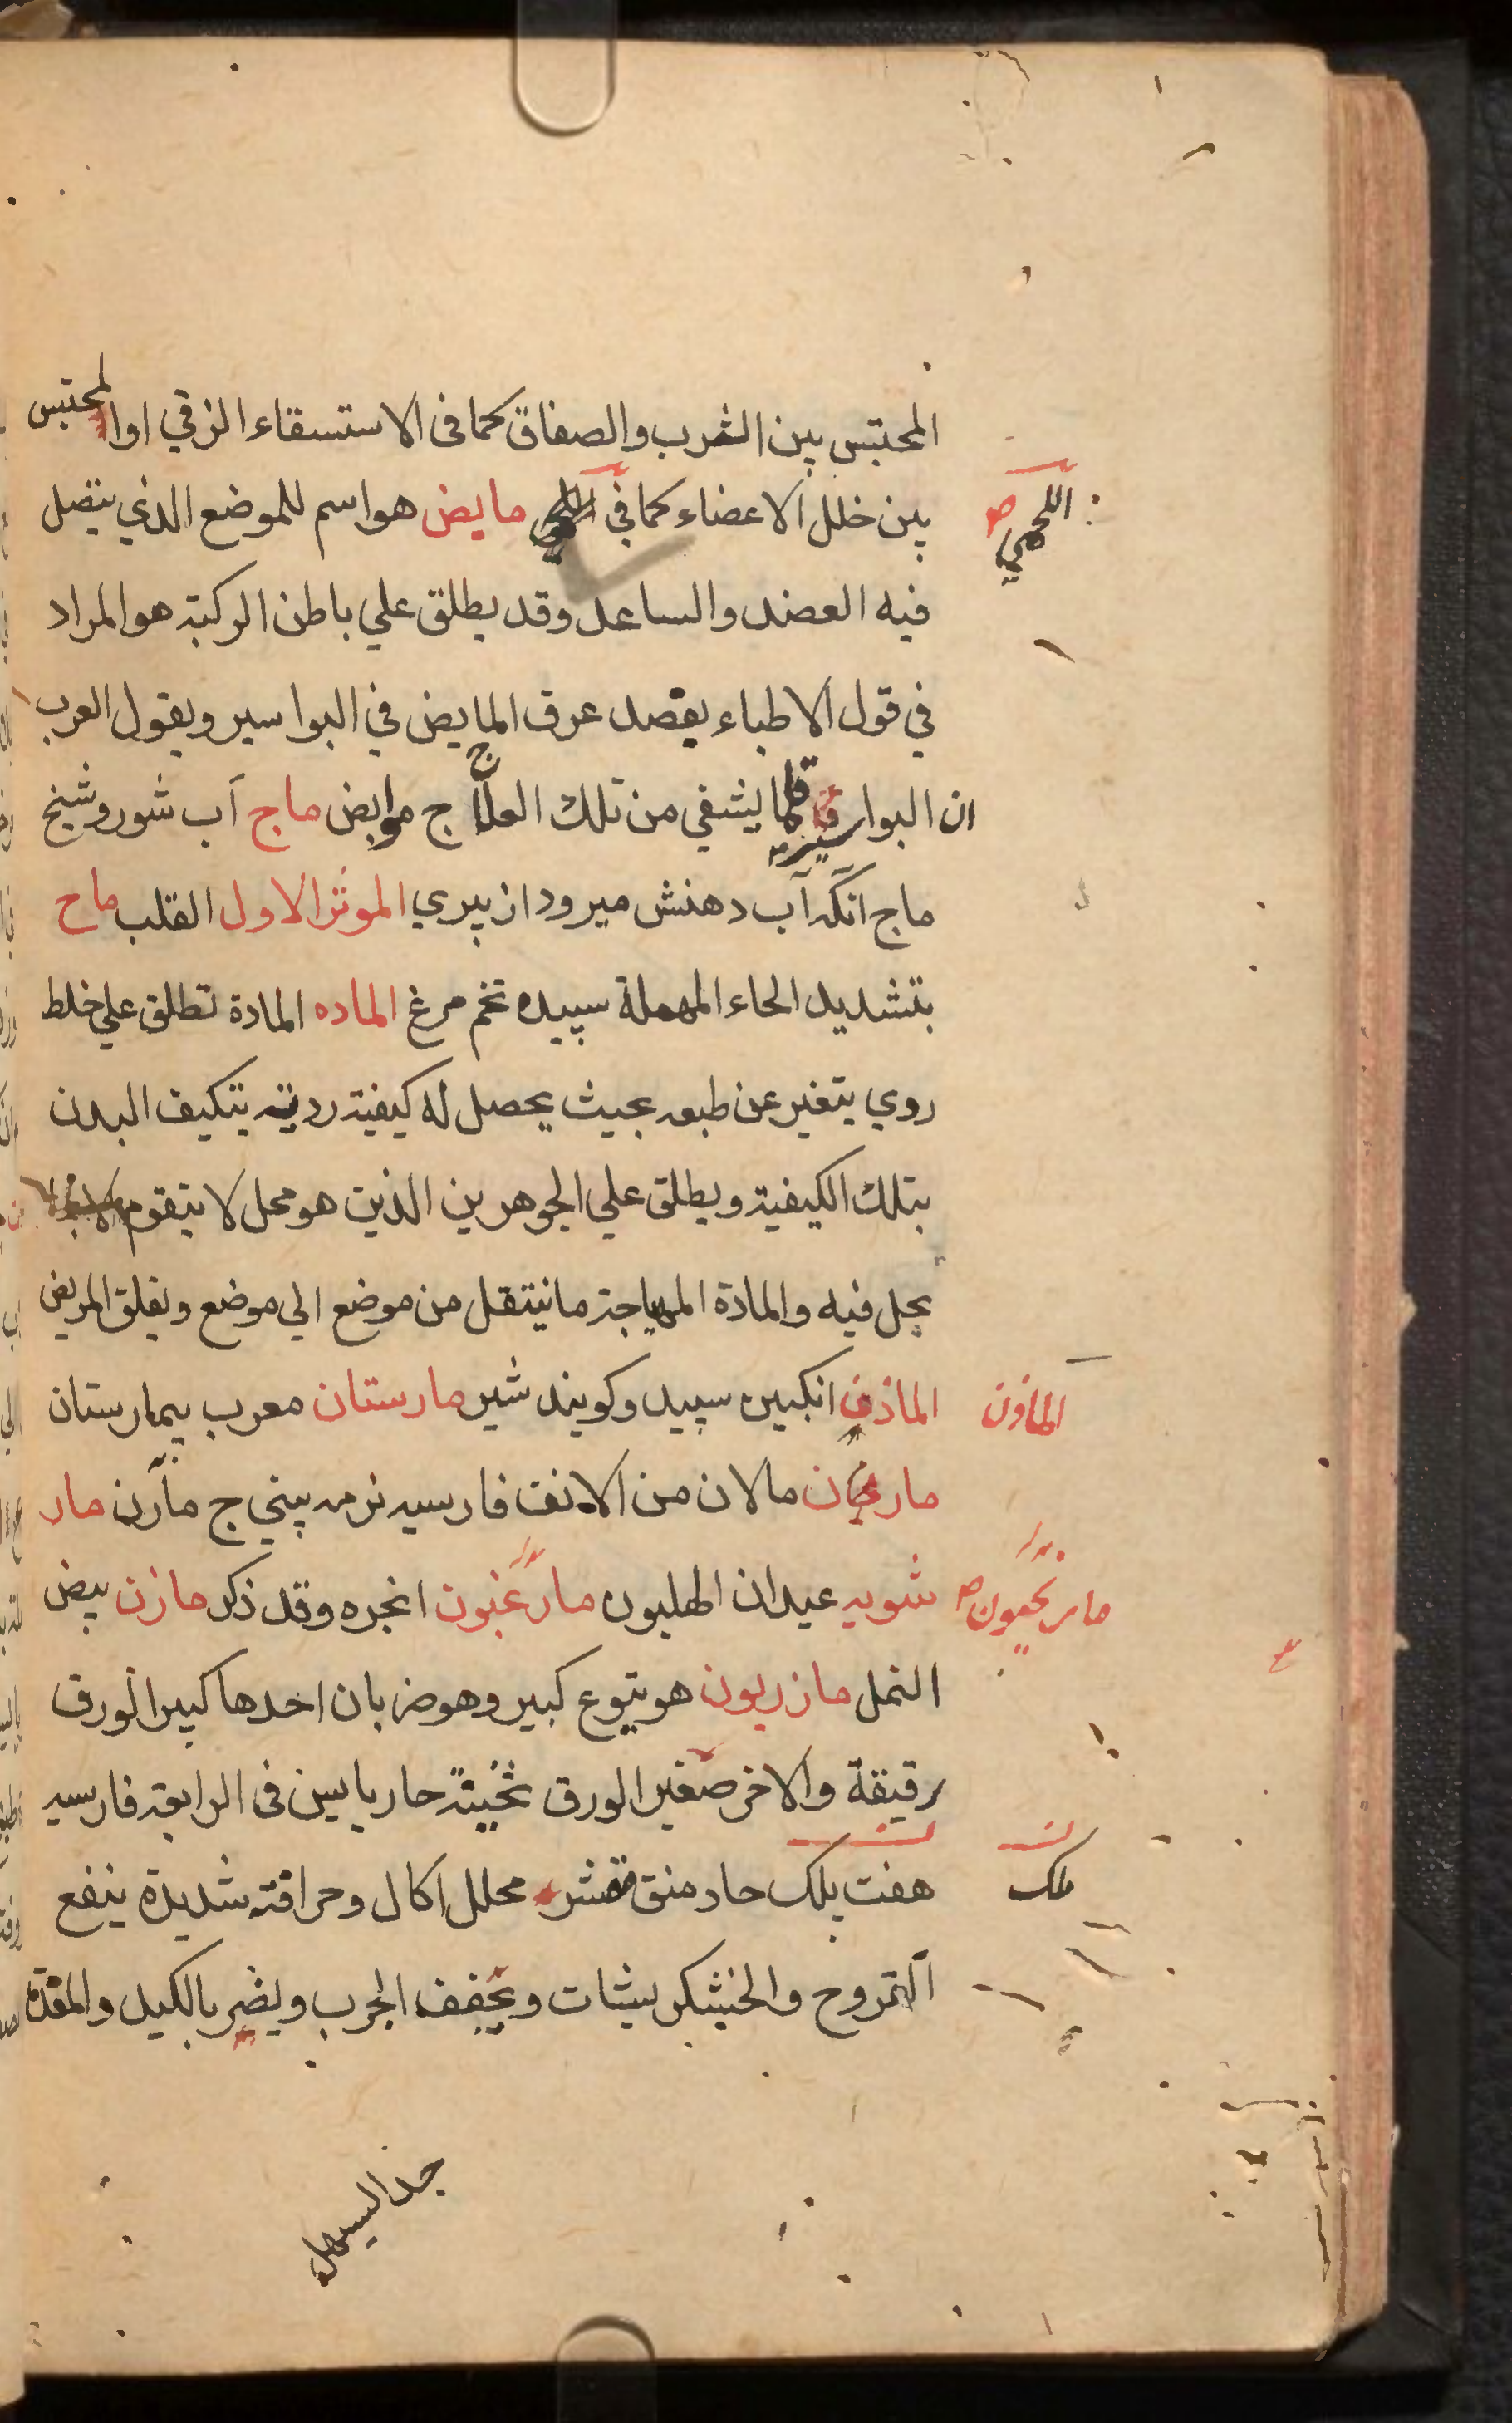 المحتبس بين الثرب والصفاق كما فى الاستسقاء الزقي او المحتبس
بين خلل الاعضاء كما في مايض هو اسم للموضع الذي يتصل
اللحمي صح
فيه العضد والساعد وقد يطلق علي باطن الركبة هو المراد
في قول الاطباء يفصد عرق المايض في البواسير ويقول العرب
ان البواسير قلما يشفي من تلك العلاج ج موابض ماج آب شور وشيخ
ماج آنكه آب دهنش ميرود از پيري الموثر الاول القلب ماح
بتشديد الحاء المهملة سپيده تخم مرغ الماده المادة تطلق علي خلط
روي يتغير عن طبعه بحيث يحصل له كيفية ردية يتكيف البدن
بتلك الكيفية ويطلق علي الجوهرين الذين هو محل لا يتقوم
يحل فيه والمادة المهياجة ما ينتقل من موضع الي موضع ويقلق المريض
الماذن انكبين سپيد وكويند شير مارستان معرب بيمارستان
الماذن
مارن مالان من الانف فارسيه نرمه بيني ج مآرن مار
شويه عيدان الهليون مارغنيون انجره وقد ذكر مازن بيض
النمل مازريون هو يتوع كبير وهو ضربان احدها كبير الورق
رقيقة والاخر صغير الورق ثخينة حار يابس فى الرابعة فارسيه
هفت بلك حاد منق مقشر محلل اكال وحرافته شديدة ينفع
القروح والخشكريشات ويجفف الجرب ويضر بالكبد والمعدة